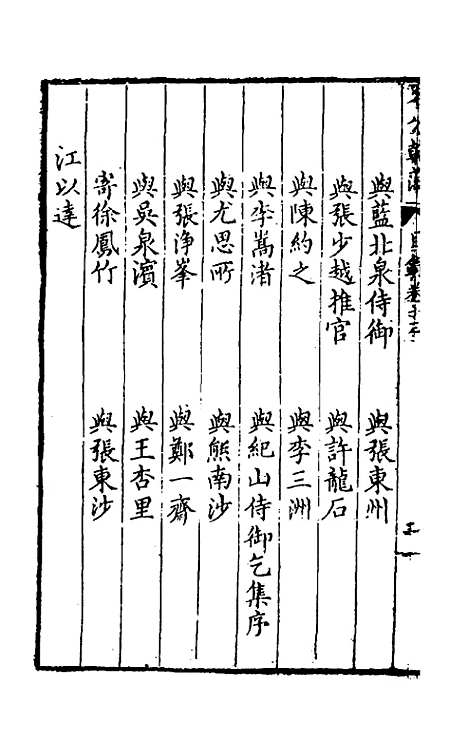 與藍北泉侍御 與張東州
與張少越推官 與許龍石
與陳約之 與李三洲
與李嵩渚 與紀山侍御乞集序
與尤思所 與熊南沙
與張淨峯 與鄭一齋
與吳泉濵 與王杏里
寄徐鳳竹 與張東沙
江以達